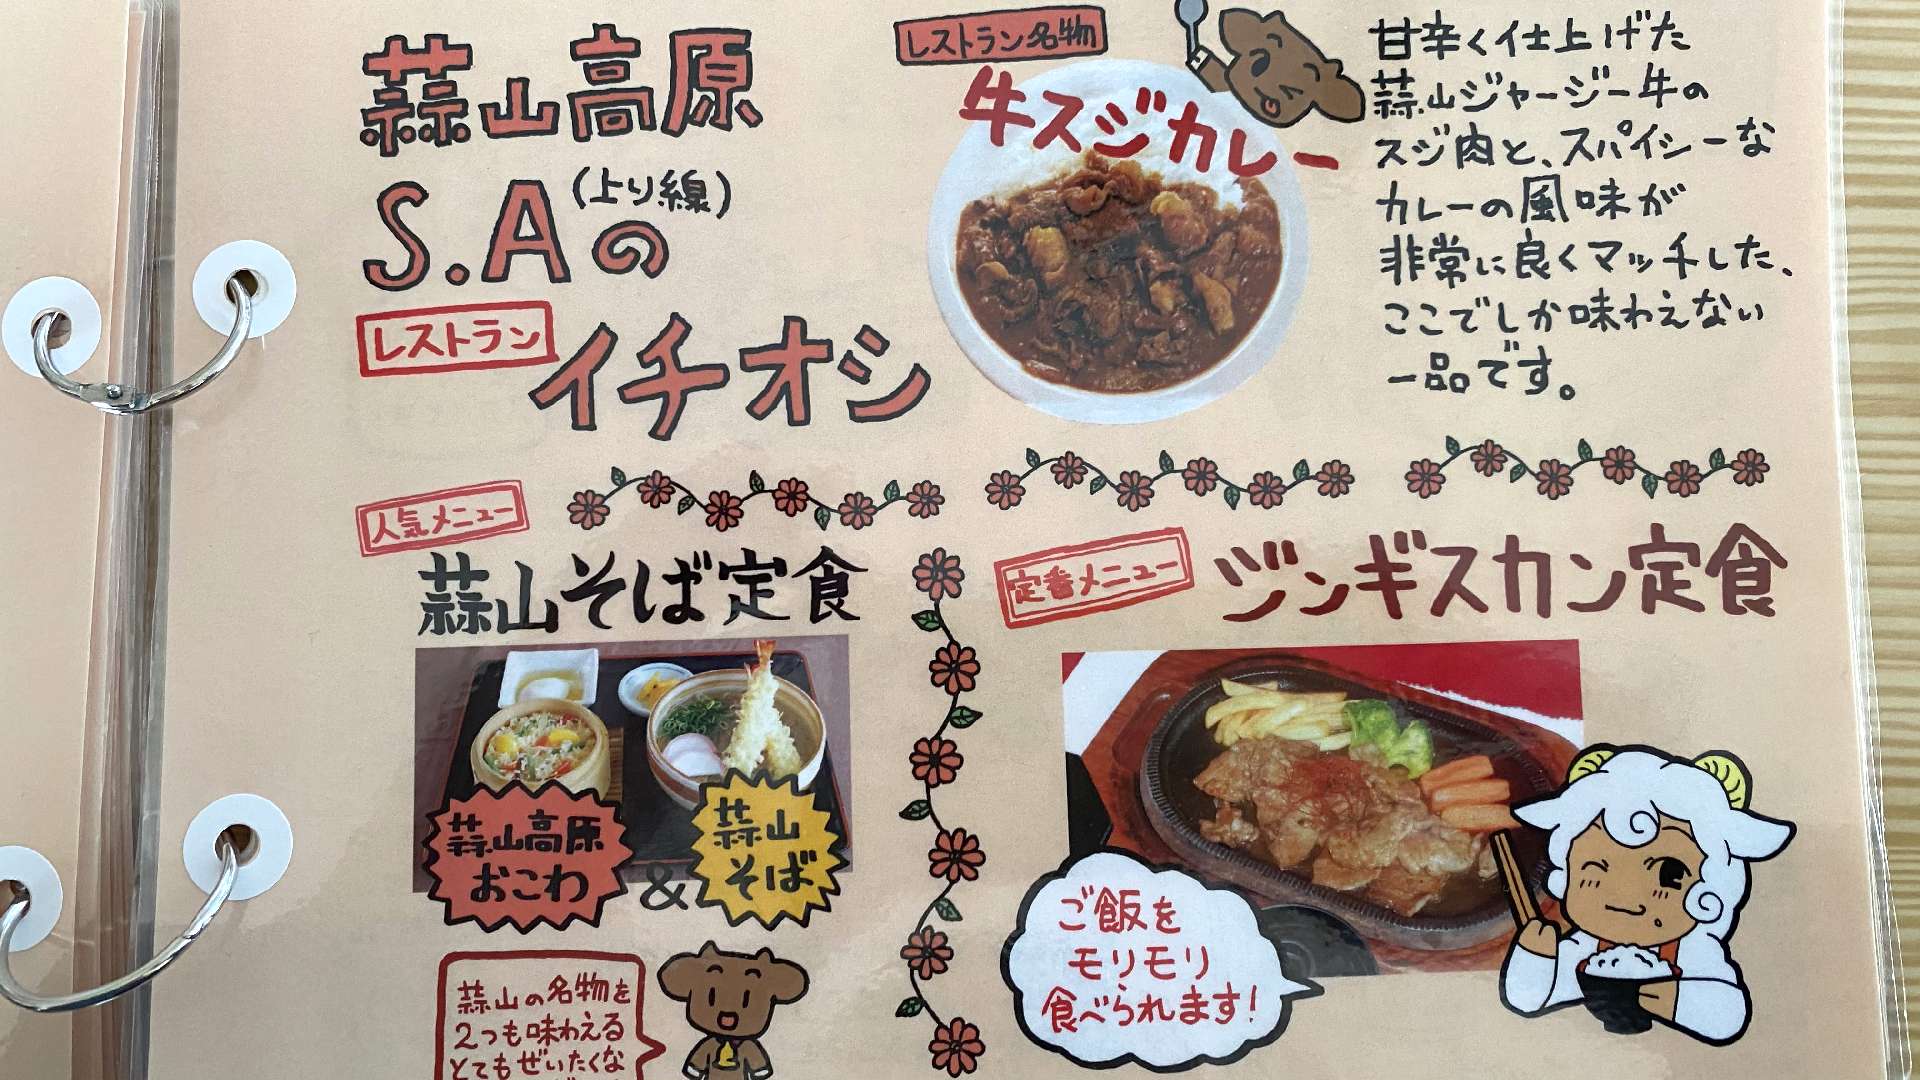 蒜山高原
S.A(上り線)の
レストラン イチオシ
レストラン名物
牛スジカレー
甘辛く仕上げた
蒜山ジャージー牛の
スジ肉と、スパイシーな
カレーの風味が
非常に良くマッチした、
ここでしか味わえない
一品です。
人気メニュー
蒜山そば定食
蒜山高原
おこわ
&
蒜山
そば
蒜山の名物を
2つも味わえる
とてもぜいたくな
定番メニュー
ジンギスカン定食
ご飯を
モリモリ
食べられます!